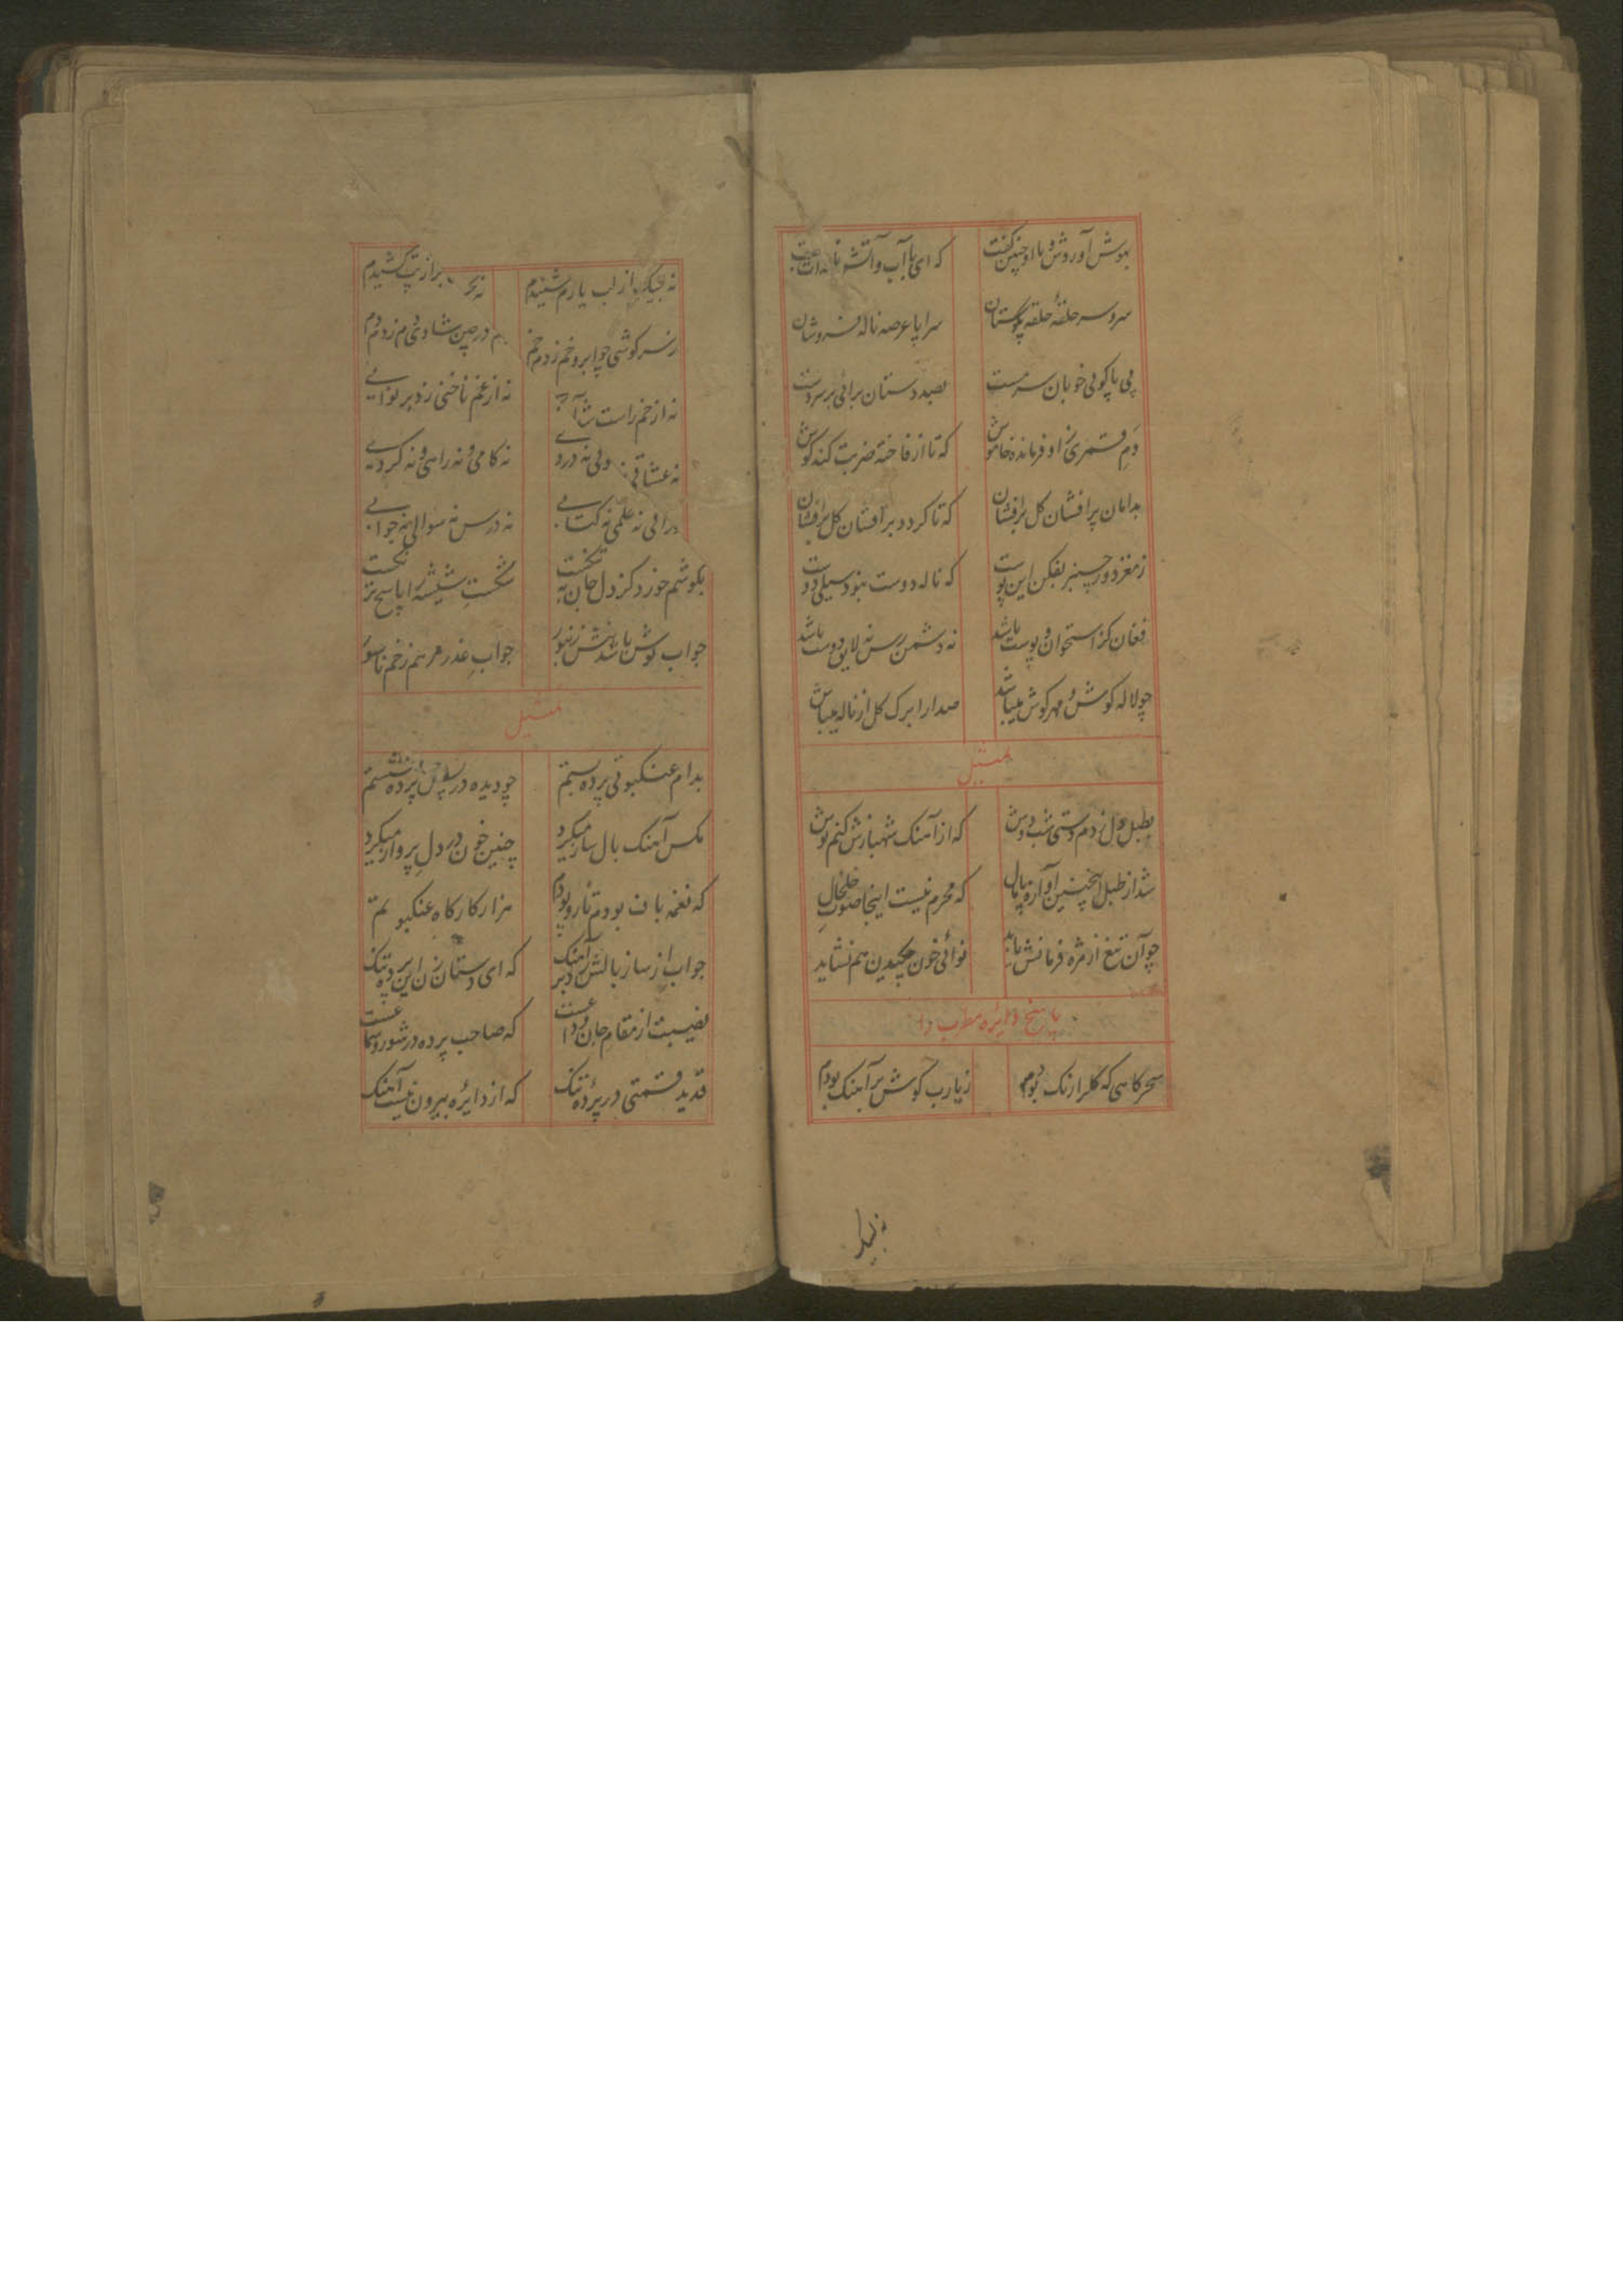 بهوش آورد و با او چنین گفت که ای با آب و آتش
سر و سر حلقهٔ حلقه بگوشان سراپا عرصه ناله فروشان
پی پاکوبی خوبان سرمست بصد دستان برائی بر سر دست
دم قمری ز او فرمانده خاموش که تا از فاخته ضربت کند گوش
بدامان پر افشان گل برافشان که تا گردد بر افشان گل برافشان
ز مغز دور چنبر بفکن این پوست که ناله دوست نبود سیلی دوست
فغان کز استخوان و پوست باشد نه دشمن رس نه لایق دوست باشد
چو لاله گوش و مهر گوش میباش صدا را برگ گل از ناله میباش
تمثیل
بطبل دل زدم دستی شب دوش که از آهنگ شهبازش کنم نوش
شد از طبل اینچنین آوازه پامال که محرم نیست اینجا صوت خلخال
چو آن تیغ از مژه فرمانش باید نوائی خون چکیدن هم نشاید
پاسخ دائره مطرب را
سحرگاهی که گلرا رنگ بودم ز یارب گوش بر آهنگ بودم
نه لبیک
نه لبیک از لب یارم شنیدم نه برازتب کشیدم
ز سرگوشی چو ابرو خم زدم خم در چین شادی دم زدم دم
نه از خم راست نه از غم ناخنی زد بر نوایی
نه عشاقی ولی نه دردی نه کامی و نه راهی و نه گردی
نه علمی نه کتابی نه درس نه سوالی نه جوابی
بگوشم خورد کز دل جان شکست شیشه را پاسخ
جواب نوش باشد نیش زنبور جواب عذر مرهم زخم ناسور
تمثیل
بدام عنکبوتی پرده بستم چو دیده در پس پرده نشستم
مگس آهنگ بال ساز میکرد چنین خون در دل پرواز میکرد
که نغمه باف بودم تار و پودم هزار کارگاه عنکبوتم
جواب از ساز بالش آهنگ که ای دستان زن این پرده تنگ
نصیبت از مقام جان که صاحب پرده در شور و سماعست
قدید قسمتی در پردهٔ تنگ که از دائره بیرون نیست آهنگ